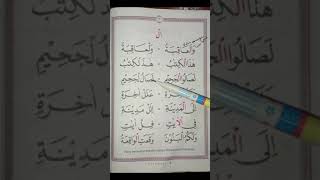 ال
وَالْعَاقِبَةُ - وَلْعَاقِبَةُ
هٰذَا الْكِتٰبُ - هٰذَلْكِتٰبُ
لَصَالُوا الْجَحِيْمِ - لَصَالُلْجَحِيْمِ
خِرَةِ - عَلَلْ اٰخِرَةِ
اِلَى الْمَدِيْنَةِ - اِلَلْ مَدِيْنَةِ
فِى الْاٰيٰتِ - فِلْ اٰيٰتِ
وَلَكُمُ الْبَنُوْنَ - وَقَعَتِ الْوَاقِعَةُ